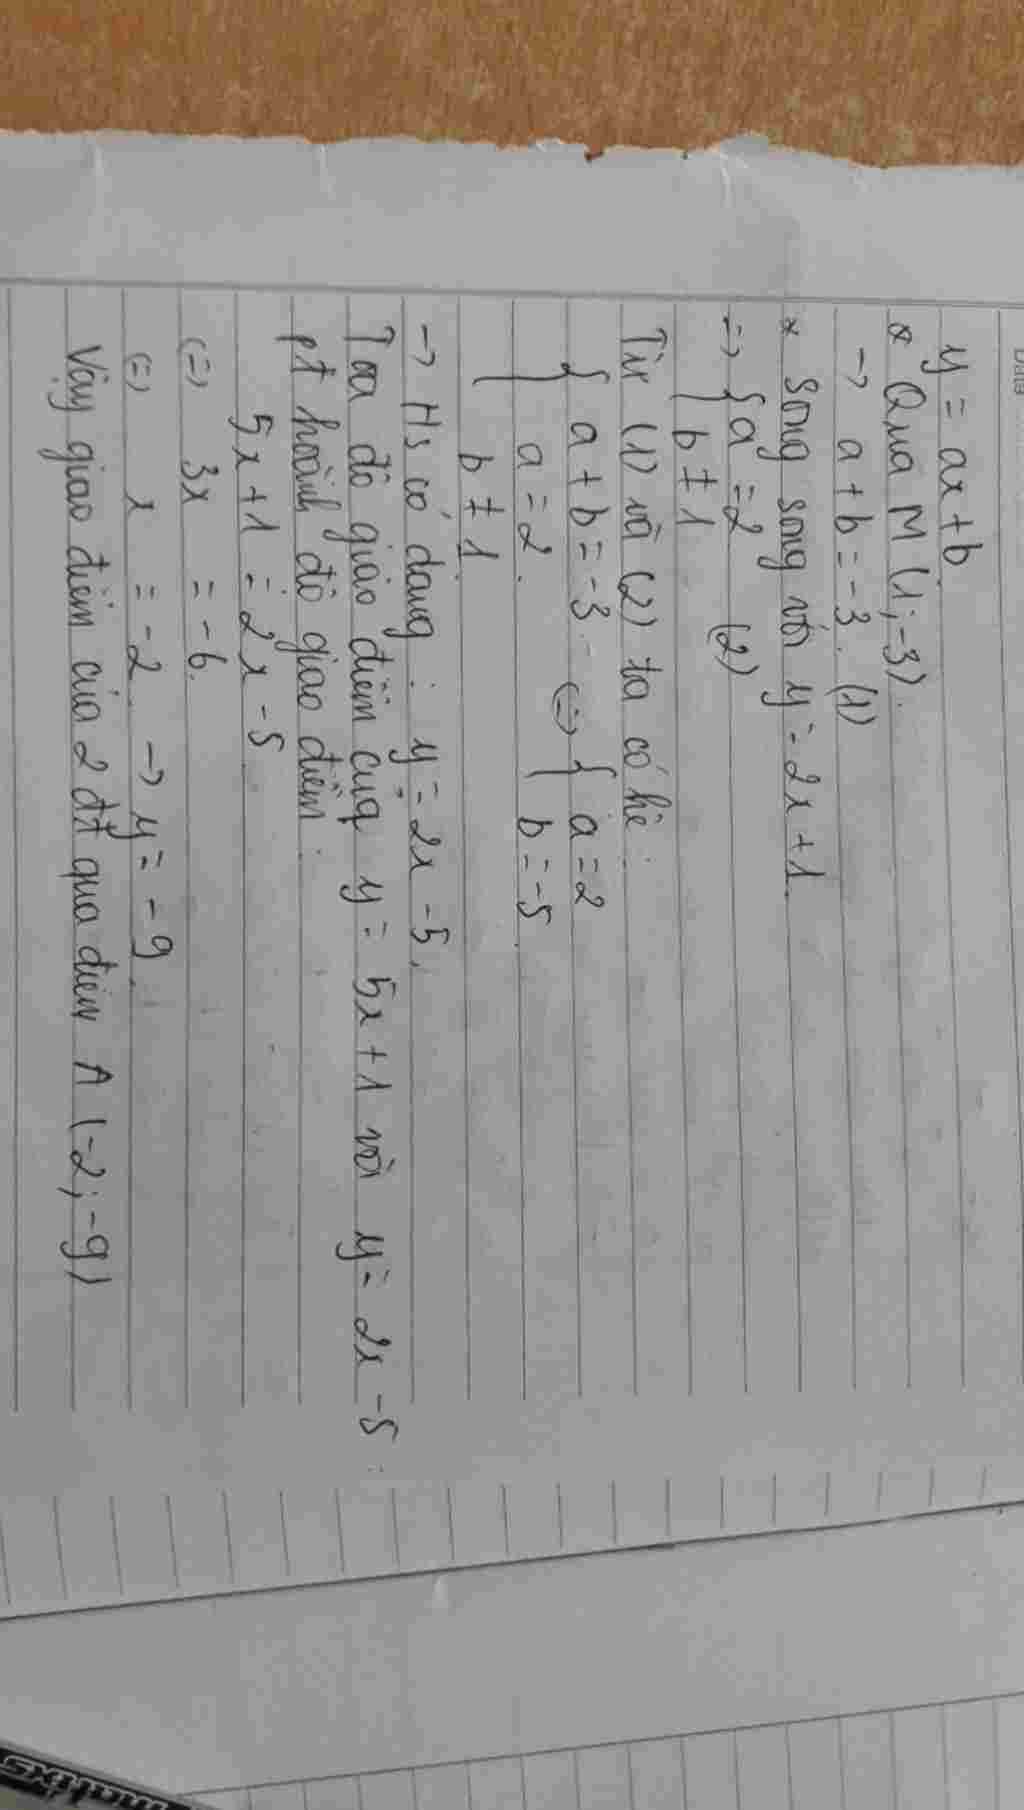 Date
y = ax + b
* Qua M (1; -3).
→ a + b = -3. (1)
* Song song với y = 2x + 1.
=> { a = 2 (2)
b ≠ 1
Từ (1) và (2) ta có hệ:
{ a + b = -3. (=) { a = 2
{ a = 2. b = -5.
b ≠ 1.
→ Hs có dạng: y = 2x - 5.
Tọa độ giao điểm của y = 5x + 1 với y = 2x - 5:
pt hoành độ giao điểm:
5x + 1 = 2x - 5
(=) 3x = -6.
(=) x = -2 → y = -9.
Vậy giao điểm của 2 đt qua điểm A (-2; -9)
matixs